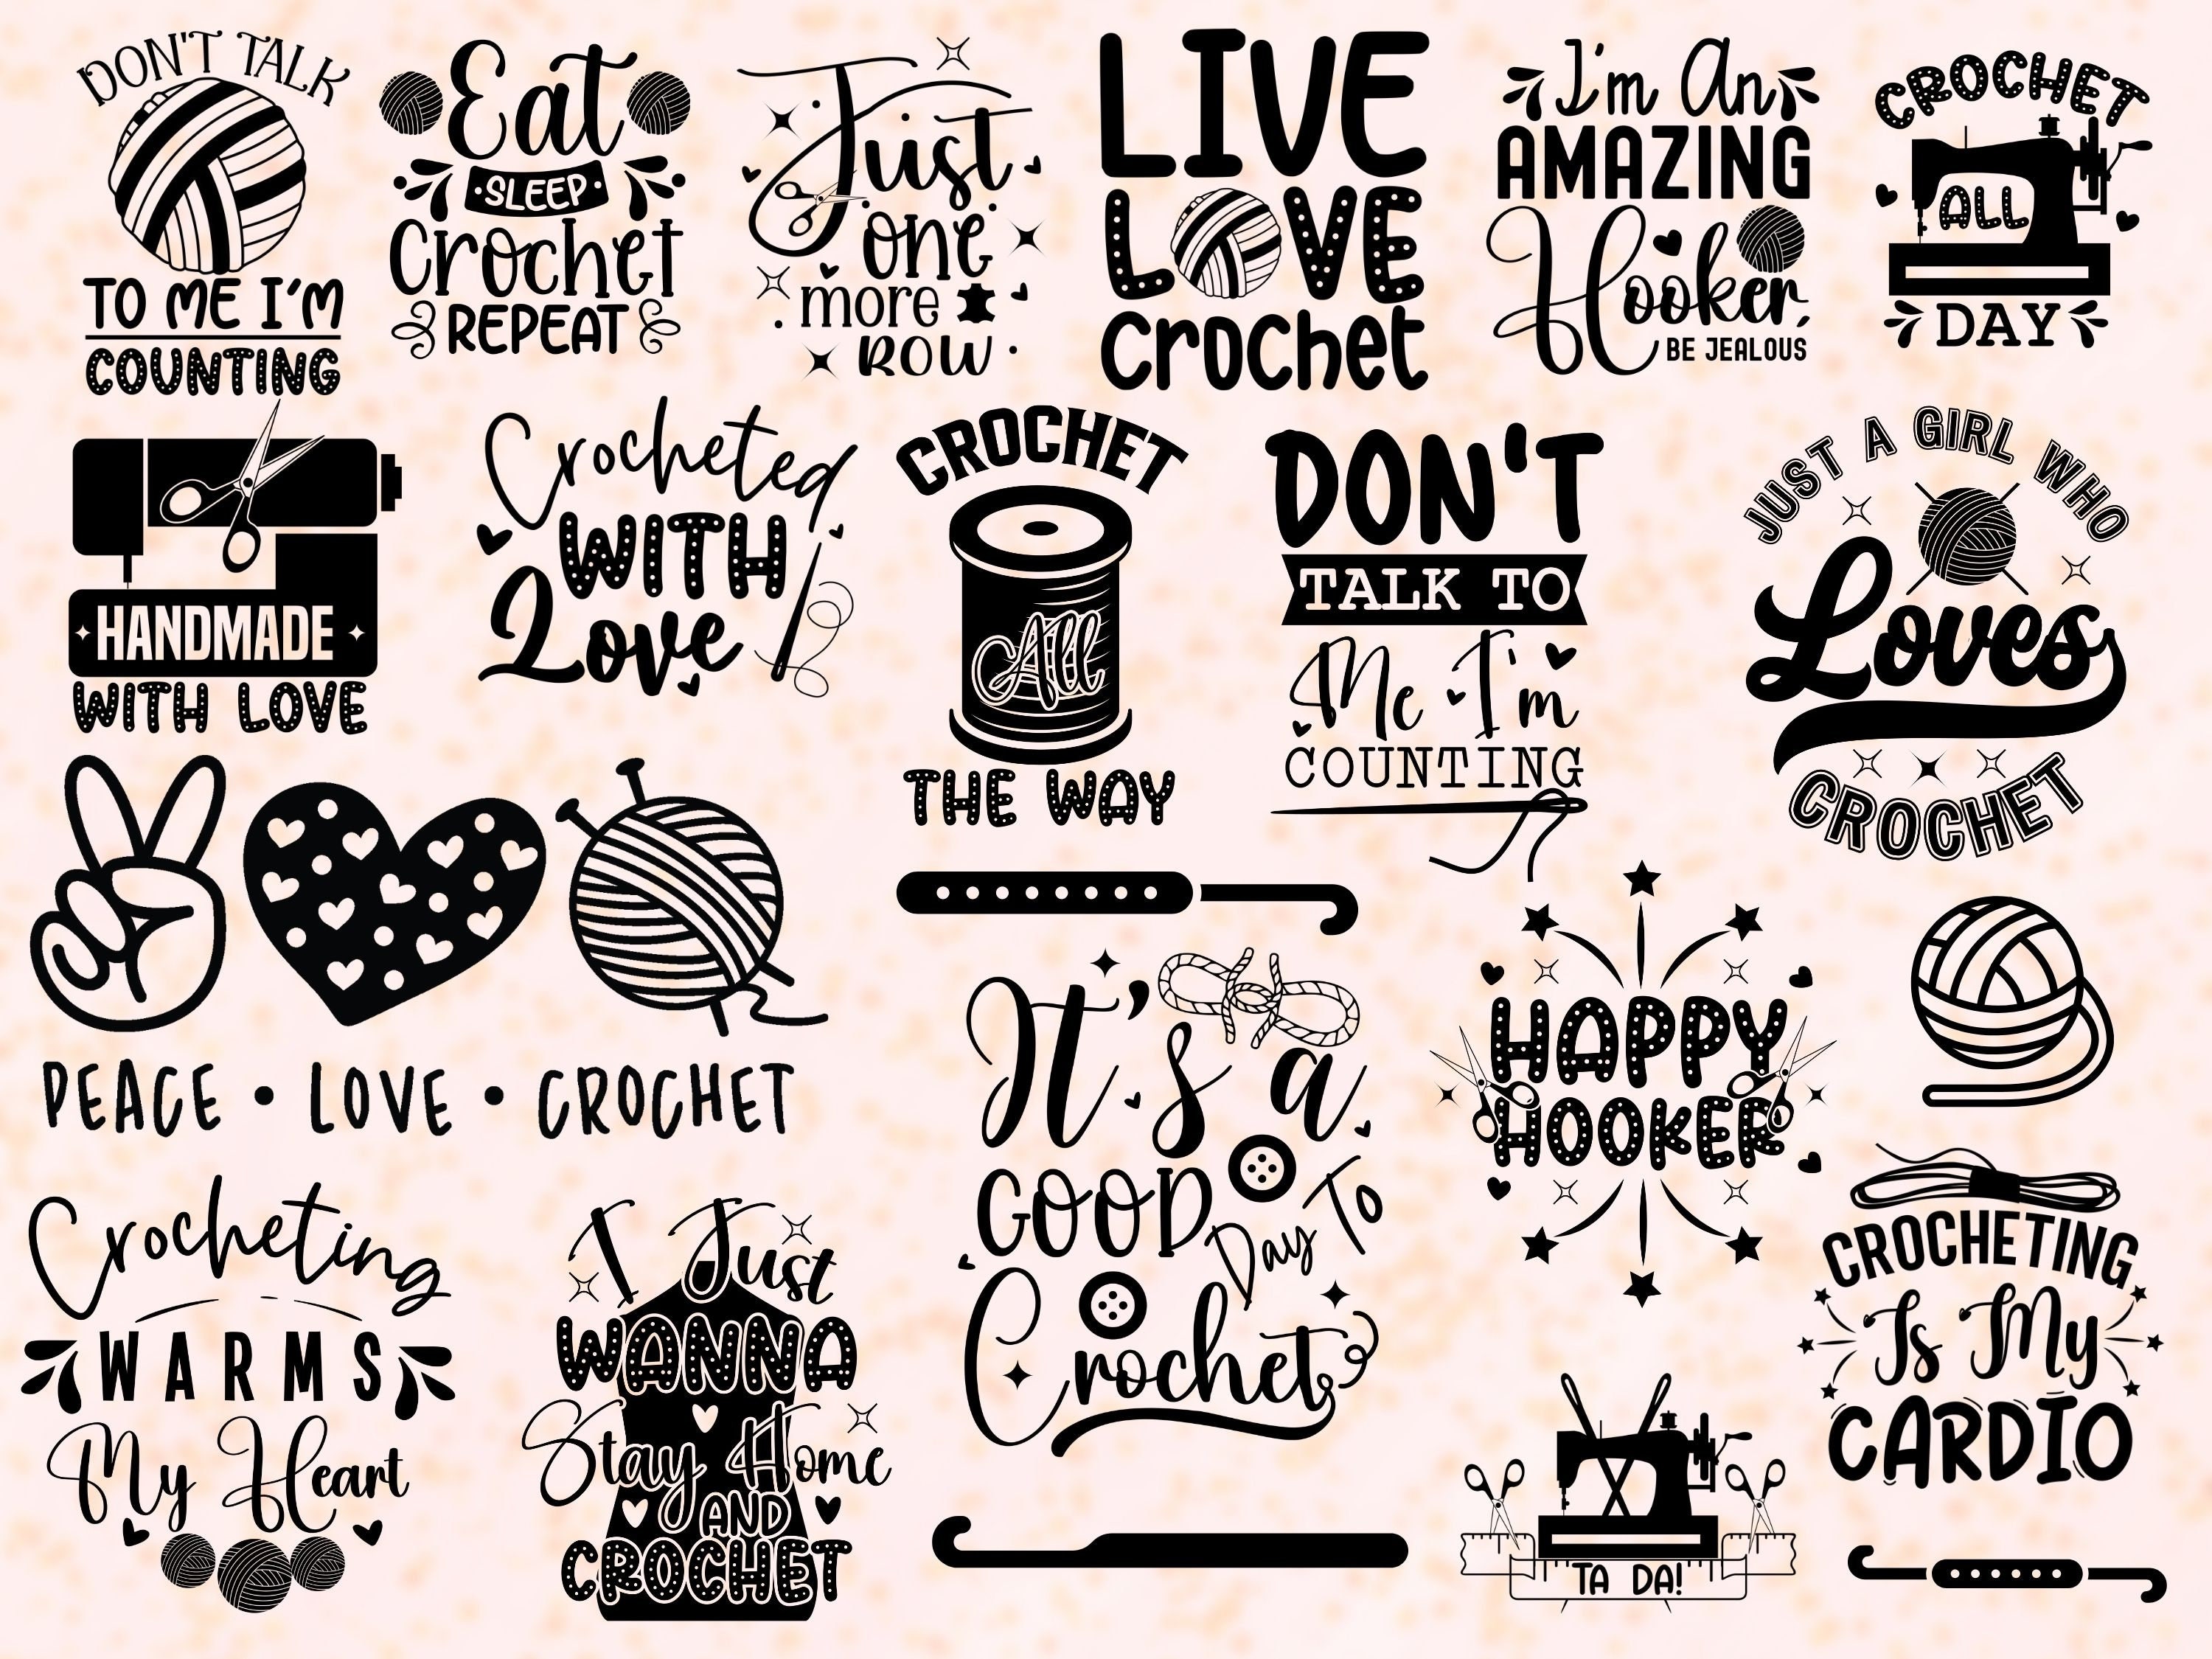 DON'T TALK
TO ME I'M
COUNTING
Eat
SLEEP
Crochet
REPEAT
Just
one
more
ROW
LIVE
LOVE
Crochet
I'm An
AMAZING
Hooker,
BE JEALOUS
CROCHET
ALL
DAY
HANDMADE
WITH LOVE
Crocheted
WITH
Love
CROCHET
All
THE WAY
DON'T
TALK TO
Me I'm
COUNTING
JUST A GIRL WHO
Loves
CROCHET
PEACE • LOVE • CROCHET
It's a
GOOD
Day To
Crochet
HAPPY
HOOKER
Crocheting
WARMS
My Heart
I Just
WANNA
Stay Home
AND
CROCHET
CROCHETING
Is My
CARDIO
TA DA!